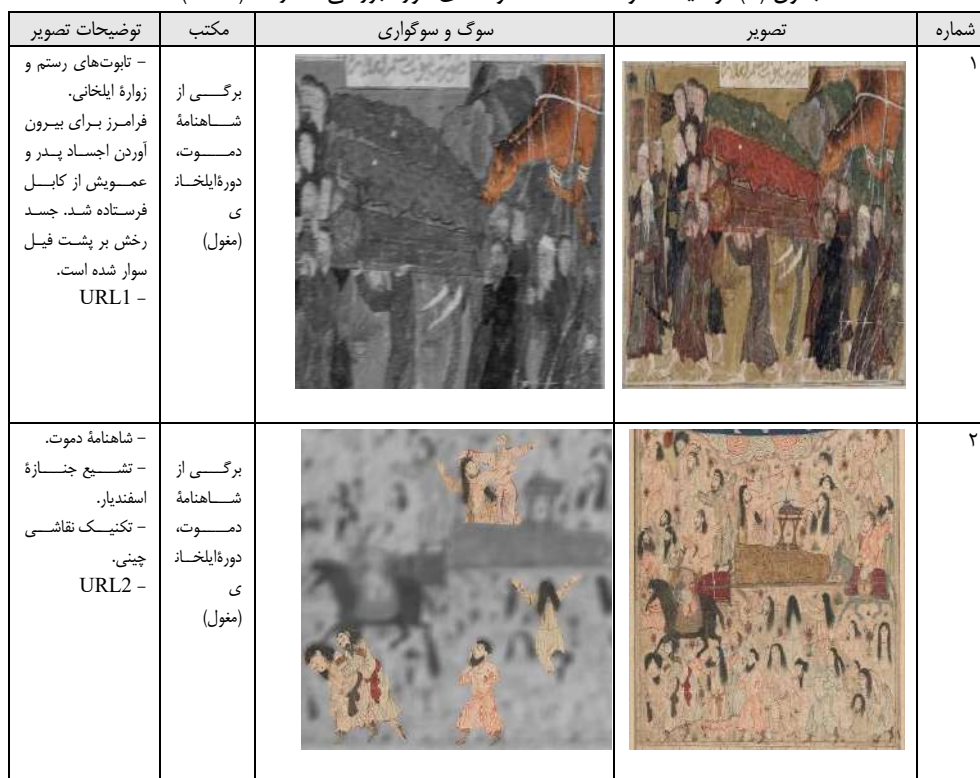 شماره
تصویر
سوگ و سوگواری
مکتب
توضیحات تصویر
۱
برگی از
شاهنامۀ
دموت،
دورۀایلخان
ی
(مغول)
- تابوت‌های رستم و
زوارۀ ایلخانی.
فرامرز برای بیرون
آوردن اجساد پدر و
عمویش از کابل
فرستاده شد. جسد
رخش بر پشت فیل
سوار شده است.
- URL1
۲
برگی از
شاهنامۀ
دموت،
دورۀایلخان
ی
(مغول)
- شاهنامۀ دموت.
- تشییع جنازۀ
اسفندیار.
- تکنیک نقاشی
چینی.
- URL2